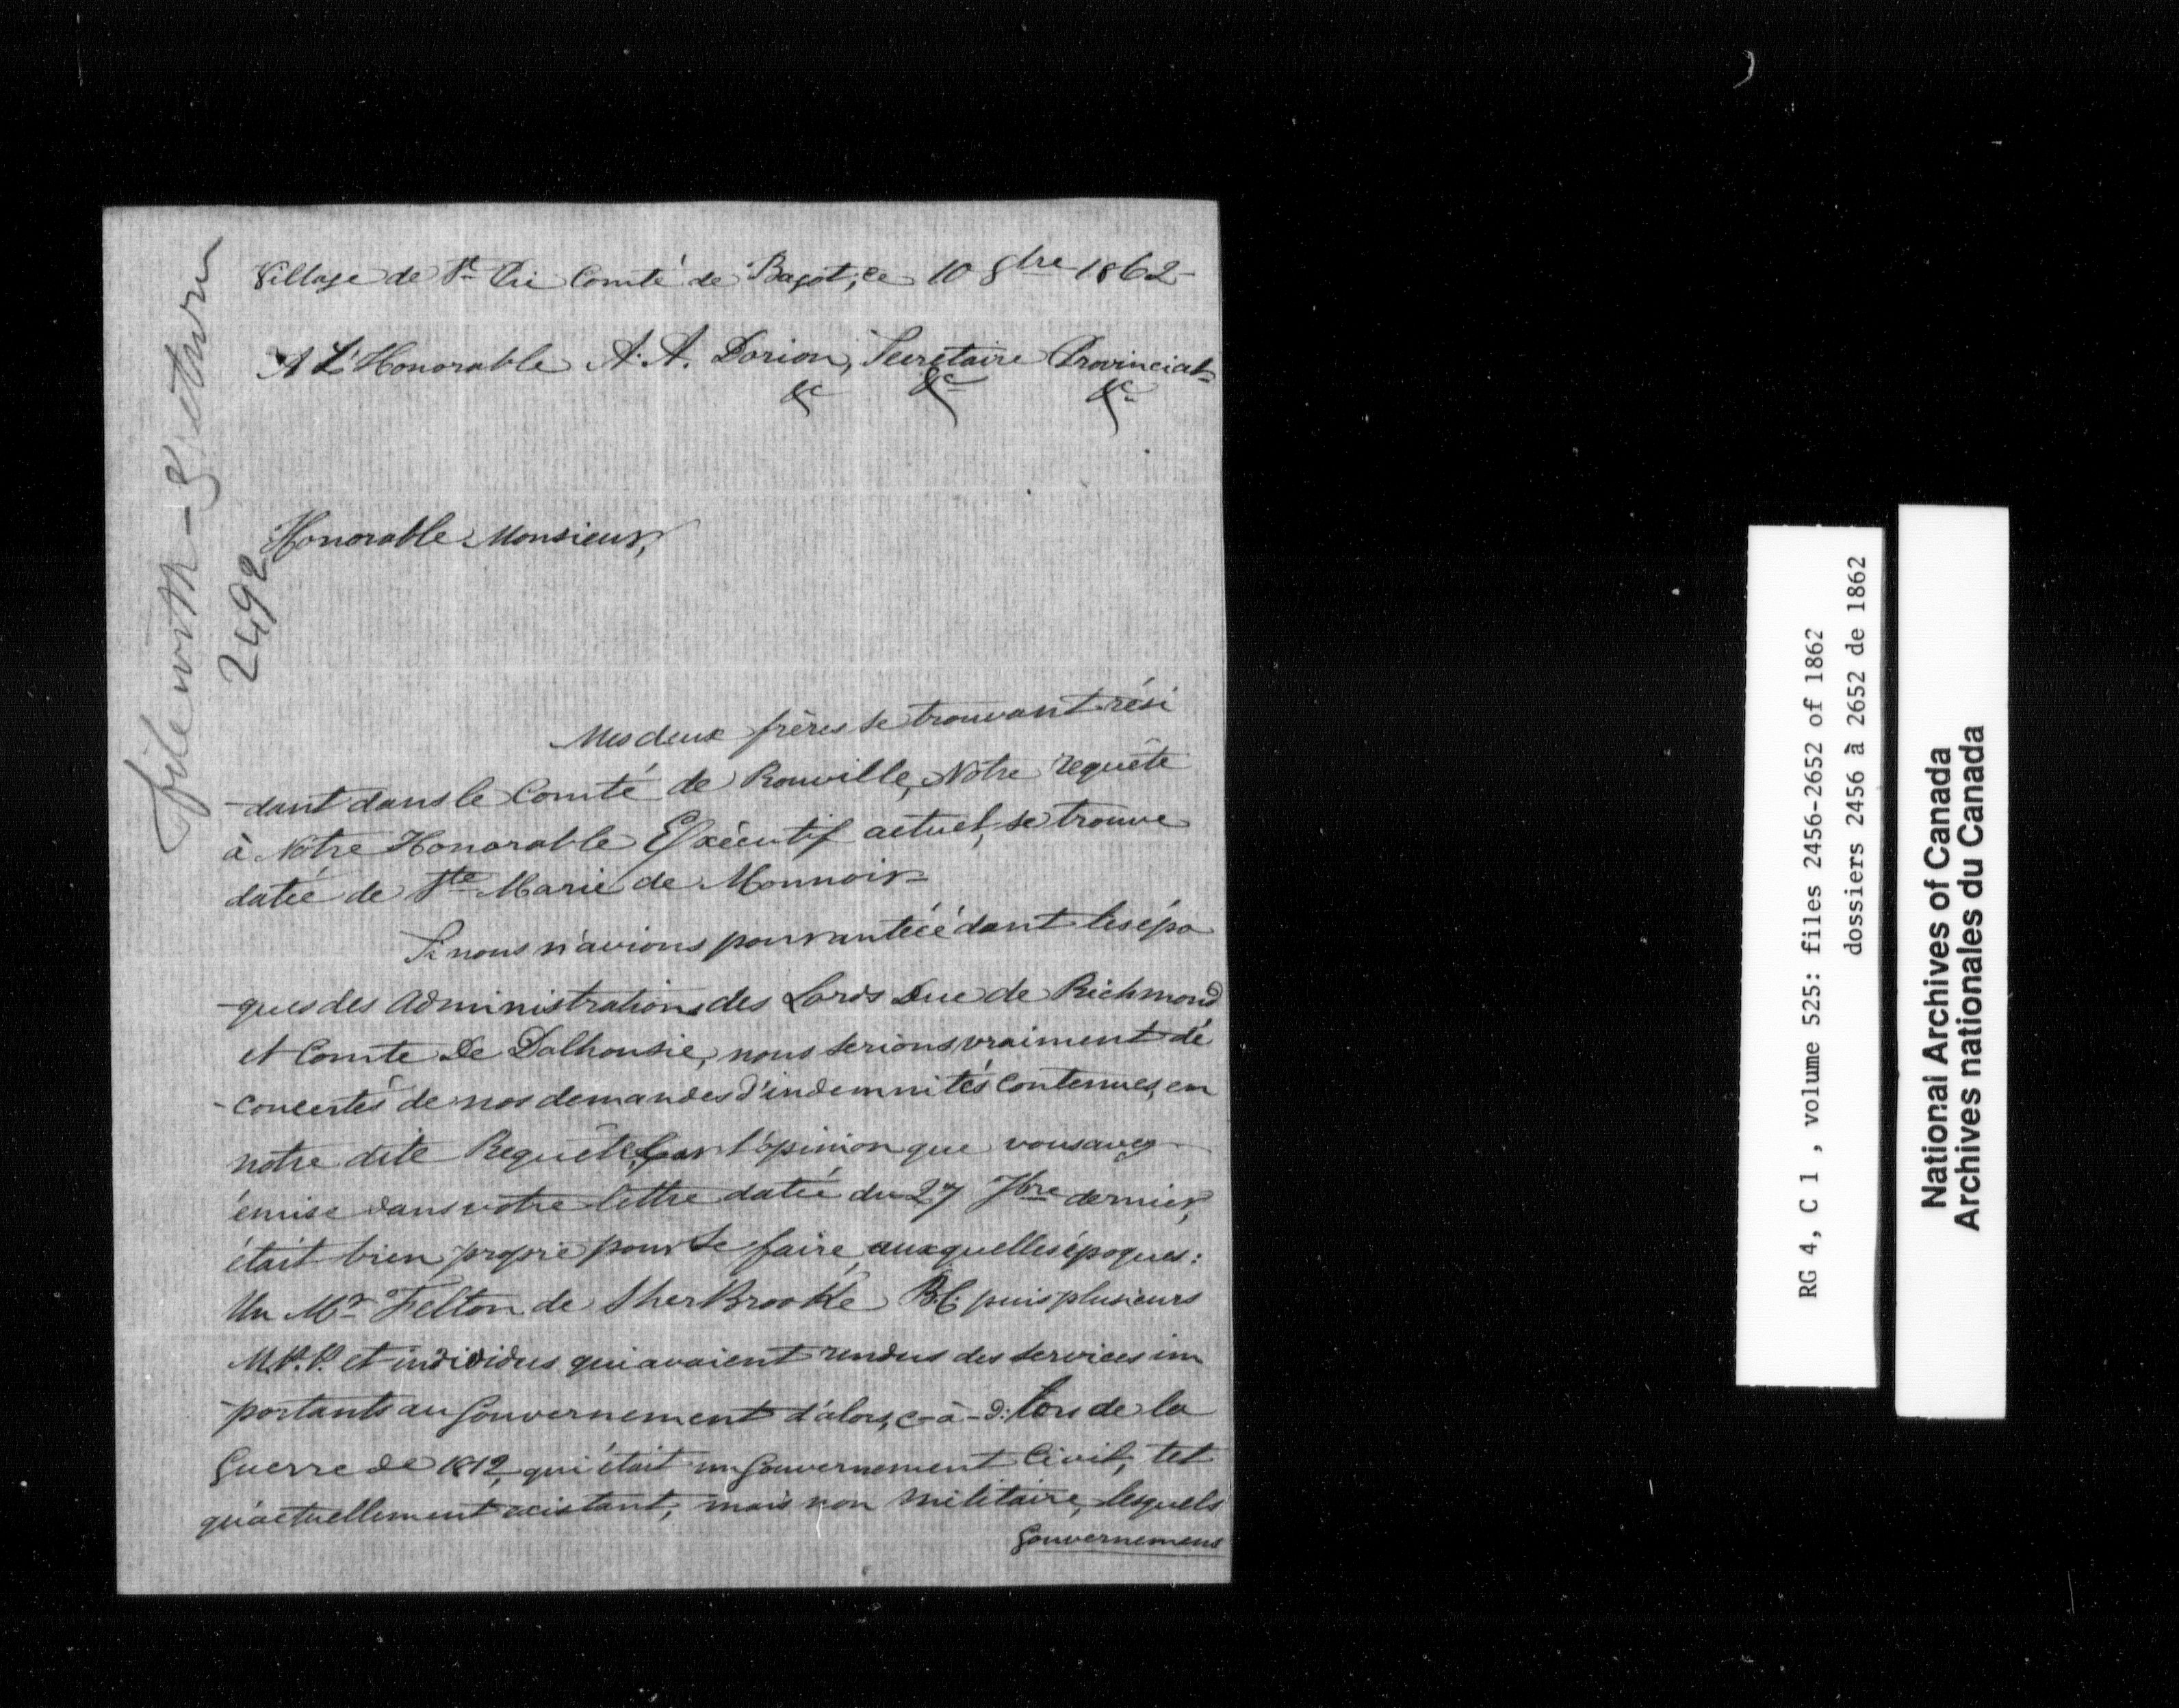 Village de St Pie Comté de Bagot, ce 10 8bre 1862-
A L'Honorable A. A. Dorion, Secretaire Provincial
&c &c &c
Honorable Monsieur,
File with
2492
Mes deux frères se trouvant rési
-dant dans le Comté de Rouville, Notre requête
à Notre Honorable Exécutif actuel, se trouve
datée de Ste Marie de Monnoir-
Si nous n'avions pour antécédant les épo
-ques des administrations des Lords Duc de Richmond
et Comte De Dalhousie, nous serions vraiment dé
-concertés de nos demandes d'indemnités contenues, en
notre dite Requête, Car l'opinion que vous avez
émise dans votre lettre datée du 27 7bre dernier,
était bien propre pour le faire, auxquelles époques:
Un Mr Felton de SherBrooke B.C. puis plusieurs
M.P.P. et individus qui avaient rendus des services im
-portants au Gouvernement d'alors, c-à-d: lors de la
Guerre de 1812, qui était un Gouvernement Civil, tel
qu'actuellement existant, mais non Militaire, lesquels
Gouvernemens
RG 4, C 1 , volume 525: files 2456-2652 of 1862
dossiers 2456 à 2652 de 1862
National Archives of Canada
Archives nationales du Canada